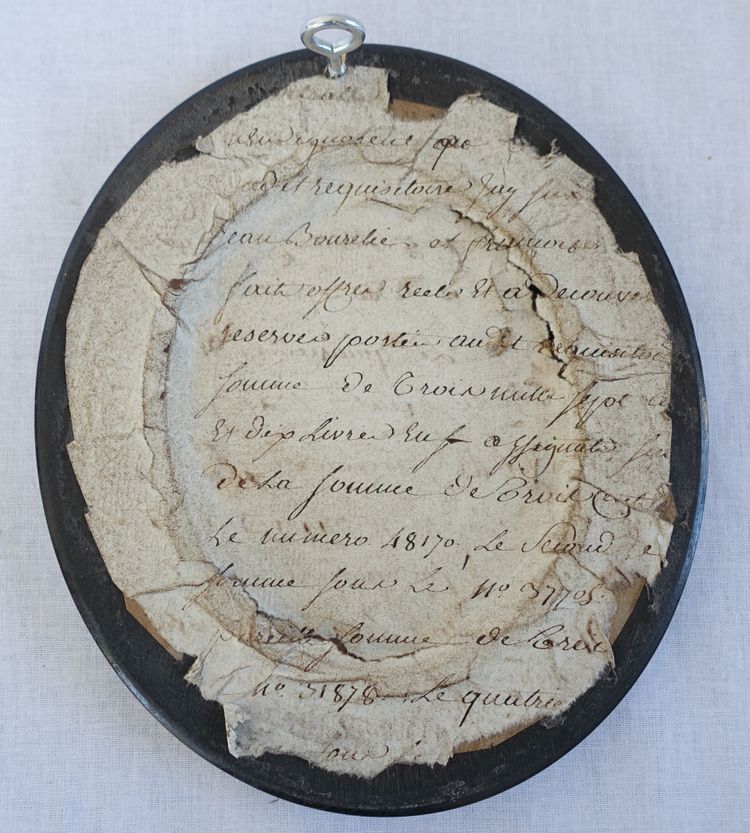 que
dit requisitoire Jay
jean Bourelie et
fait offres reelles Et a Decouve
reserves portée audit requisitoi
somme de Trois mille sept
Et dix Livres En assignats
de La somme de Trois Cent
Le numero 48170. Le Second
somme sous Le No. 37705.
pareille somme de Troi
No. 31878. Le quatrie
sous le